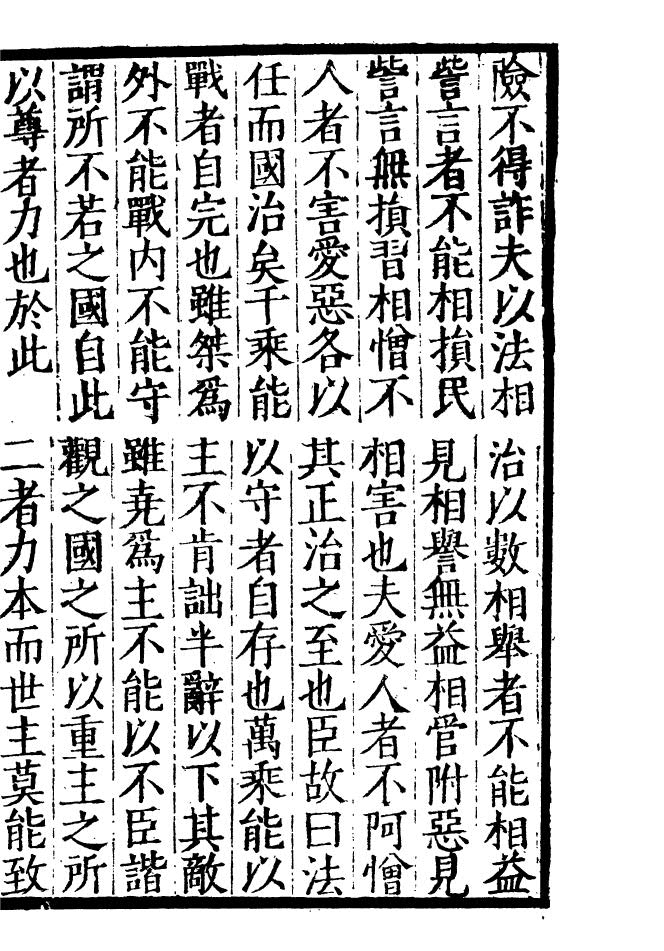 險不得詐夫以法相治以數相舉者不能相益
訾言者不能相損民見相譽無益相管附惡見
訾言無損習相憎不相害也夫愛人者不阿憎
人者不害愛惡各以其正治之至也臣故曰法
任而國治矣千乘能以守者自存也萬乘能以
戰者自完也雖桀爲主不肯詘半辭以下其敵
外不能戰内不能守雖尭爲主不能以不臣諧
謂所不若之國自此觀之國之所以重主之所
以尊者力也於此二者力本而世主莫能致